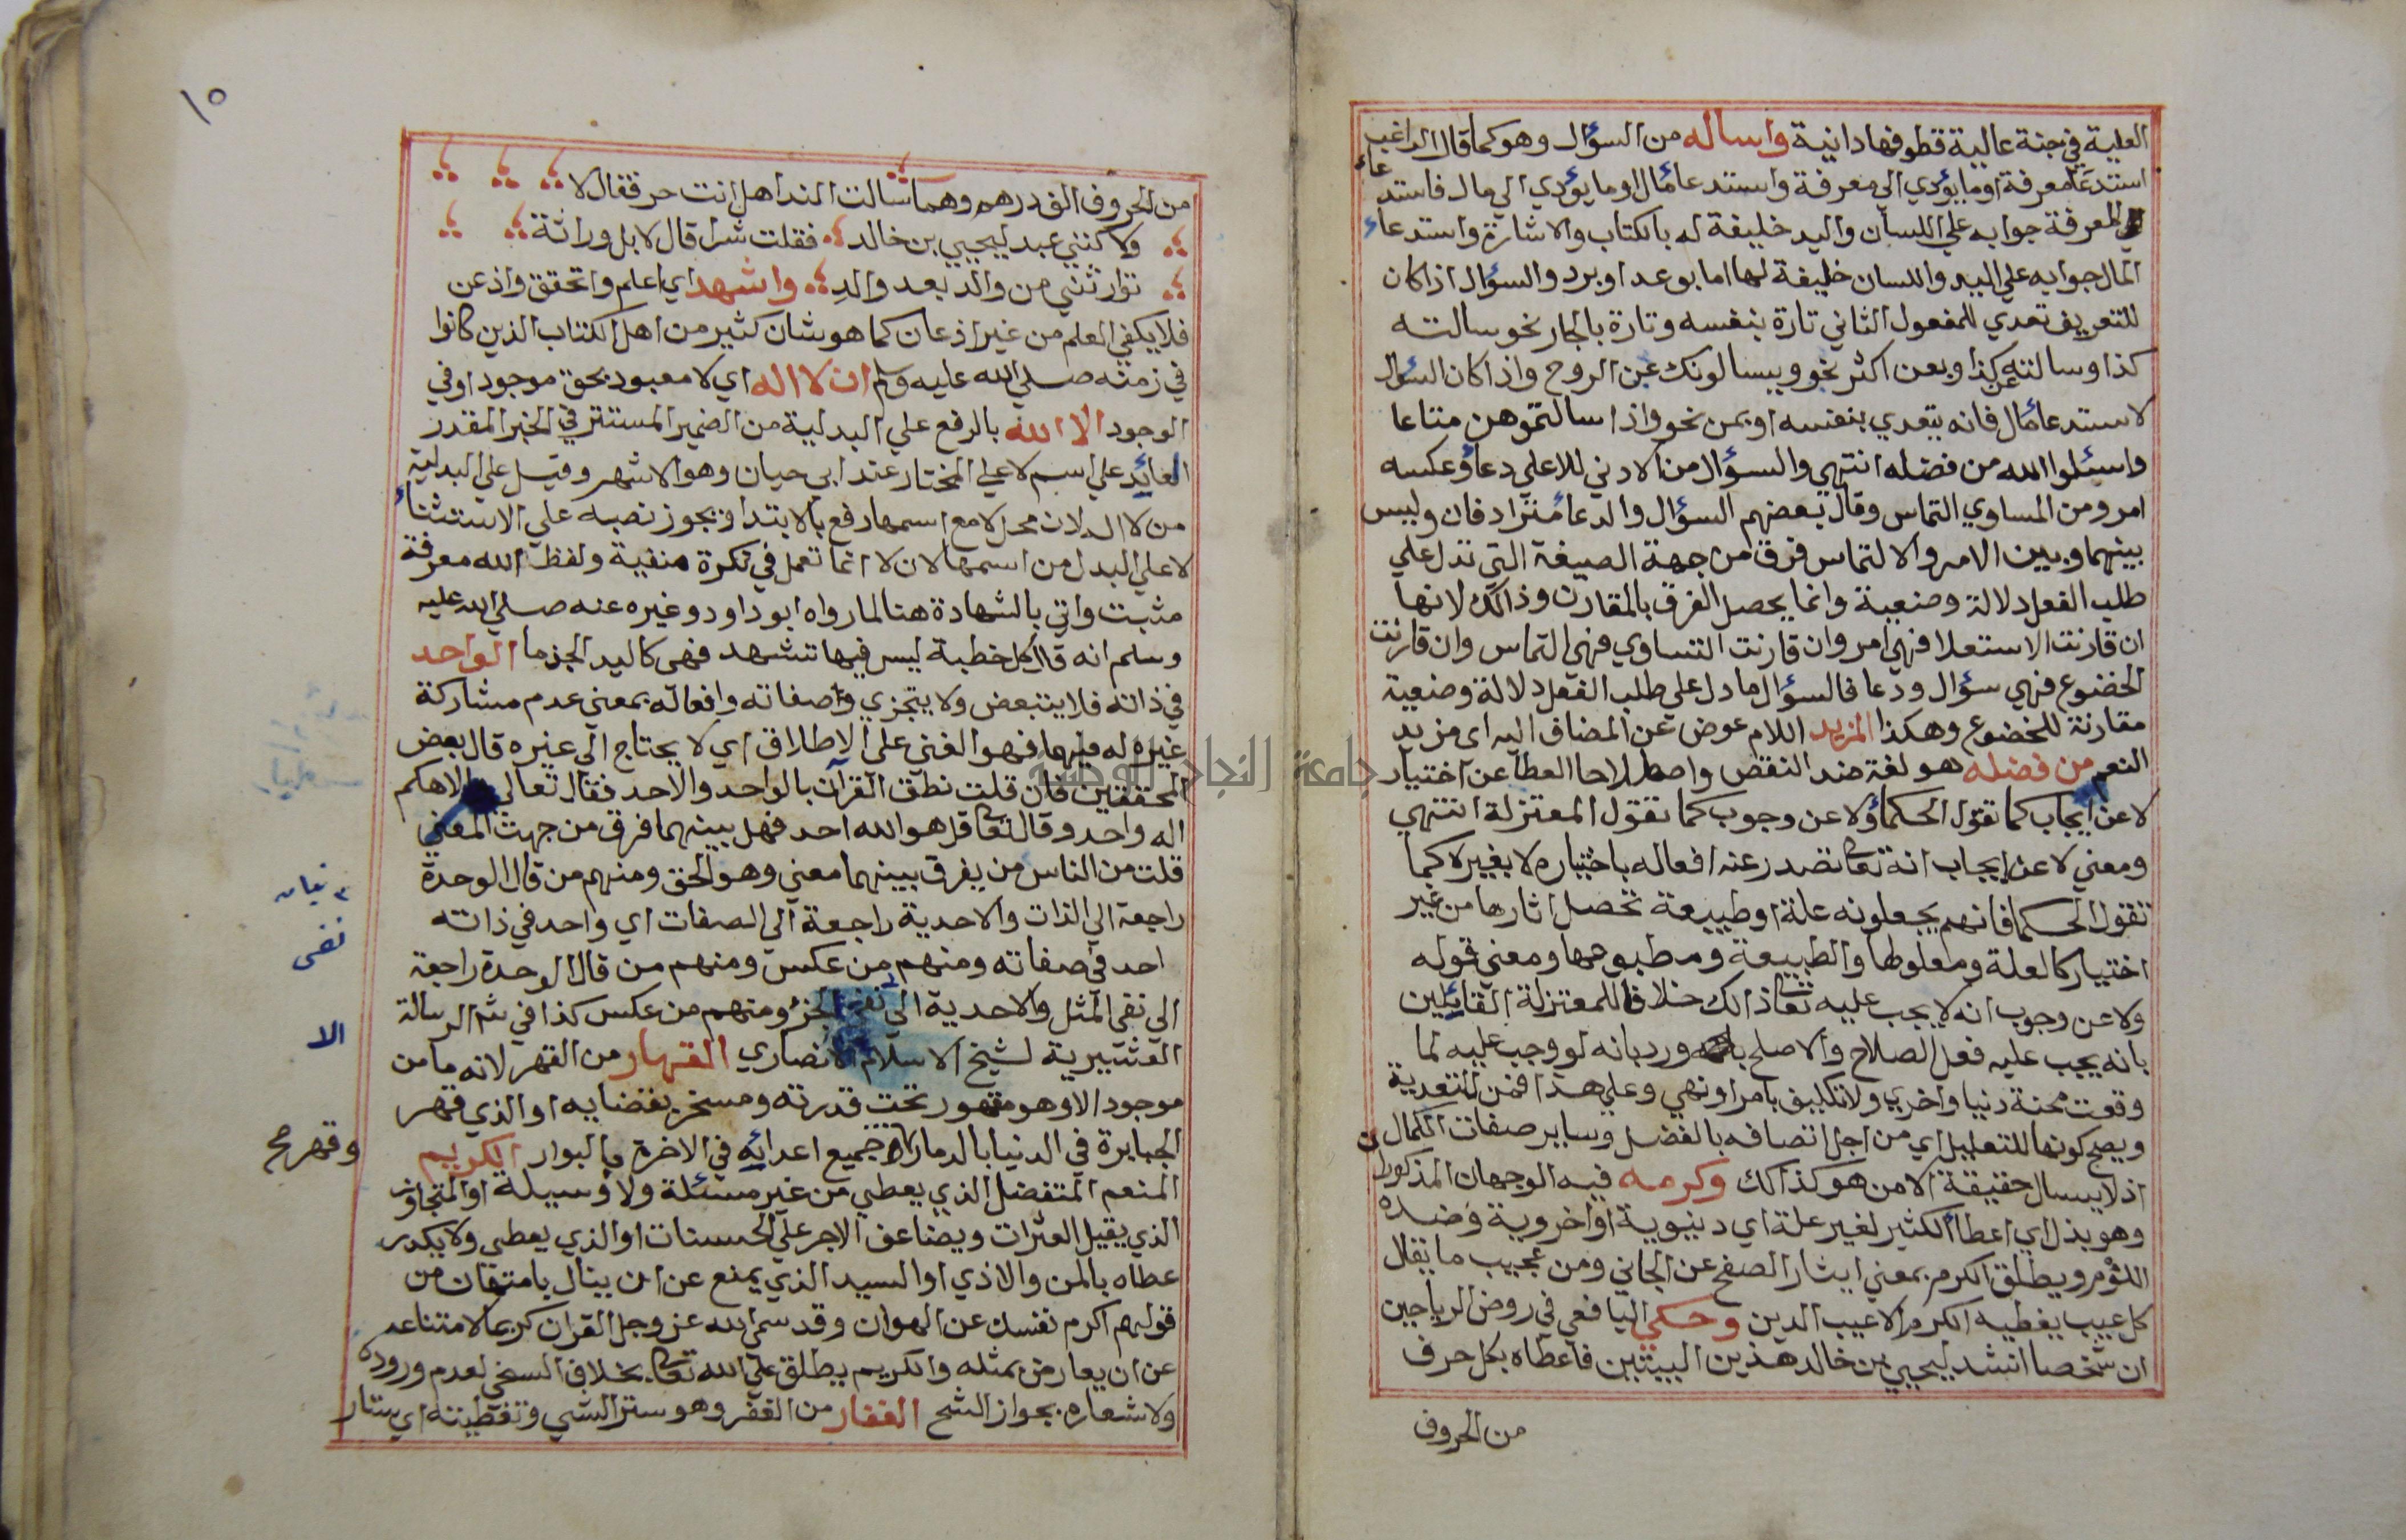 العلية في جنة عالية قطوفها دانية واساله من السؤال وهو كما قال الراغب
استدعآ معرفة او ما يؤدي الي معرفة واستدعا مال او ما يؤدي الي مال فاستدعاء
المعرفة جوابه علي اللسان واليد خليفة له بالكتاب والاشارة واستدعاء
المال جوابه علي اليد واللسان خليفة لها اما بوعد او برد والسؤال اذا كان
للتعريف تعدي للمفعول الثاني تارة بنفسه وتارة بالجار نحو سالته
كذا وسالته عن كذا وبعن اكثر نحو ويسالونك عن الروح واذا كان السؤال
لاستدعا مال فانه يتعدي بنفسه او بمن نحو واذا سالتموهن متاعا
واسئلوا الله من فضله انتهي والسؤال من الادني للاعلي دعاؤ وعكسه
امر ومن المساوي التماس وقال بعضهم السؤال والدعا مترادفان وليس
بينهما وبين الامر والالتماس فرق من جهة الصيغة التي تدل علي
طلب الفعل دلالة وضعية وانما يحصل الفرق بالمقارن وذالك لانها
ان قارنت الاستعلا فهي امر وان قارنت التساوي فهي التماس وان قارنت
الخضوع فهي سؤال ودعا فالسؤال ما دل علي طلب الفعل دلالة وضعية
مقارنة للخضوع وهكذا المزيد اللام عوض عن المضاف اليه اي مزيد
النعم من فضله هو لغة ضد النقص واصطلاحا العطا عن اختيار
لا عن ايجاب كما تقول الحكماؤ ولا عن وجوب كما تقول المعتزلة انتهي
ومعني لا عن ايجاب انه تعا تصدر عنه افعاله باختياره لا بغيره كما
تقول الحكما فانهم يجعلونه علة او طبيعة تحصل اثارها من غير
اختيار كالعلة ومعلولها والطبيعة ومطبوعها ومعني قوله
ولا عن وجوب انه لا يجب عليه تعا ذالك خلافا للمعتزلة القائلين
بانه يجب عليه فعل الصلاح والاصلح ورد بانه لو وجب عليه لما
وقعت محنة دنيا واخري ولا تكليف بامر او نهي وعلي هذا فمن للتعدية
ويصح كونها للتعليل اي من اجل اتصافه بالفضل وساير صفات الكمال
اذ لا يسال حقيقة الا من هو كذالك وكرمه فيه الوجهان المذكوران
وهو بذل اي اعطا الكثير لغير علة اي دنيوية او اخروية وضده
اللؤم ويطلق الكرم بمعني ايثار الصفح عن الجاني ومن عجيب ما يقال
كل عيب يغطيه الكرم الا عيب الدين وحكي اليافعي في روض الرياحين
ان شخصا انشد ليحيي بن خالد هذين البيتين فاعطاه بكل حرف
من الحروف
١٥
من الحروف الف درهم وهما سالت الندا هل انت حر فقال لا
ولاكنني عبد ليحيي بن خالد فقلت شرا قال لا بل وراثة
توارثني من والد بعد والد واشهد اي اعلم واتحقق واذعن
فلا يكفي العلم من غير اذعان كما هو شان كثير من اهل الكتاب الذين كانوا
في زمنه صلي الله عليه وسلم ان لا اله اي لا معبود بحق موجود او في
الوجود الا الله بالرفع علي البدلية من الضمير المستتر في الخبر المقدر
العائد علي اسم لا علي المختار عند ابي حيان وهو الاشهر وقيل علي البدلية
من لا اله لان محل لا مع اسمها رفع بالابتدا ويجوز نصبه علي الاستثناء
لا علي البدل من اسمها لان لا انما تعمل في نكرة منفية ولفظ الله معرفة
مثبت واتي بالشهادة هنا لما رواه ابو داود وغيره عنه صلي الله عليه
وسلم انه قال كل خطبة ليس فيها تشهد فهي كاليد الجذما الواحد
في ذاته فلا يتبعض ولا يتجزي وصفاته وافعاله بمعني عدم مشاركة
غيره له فيهما فهو الغني علي الاطلاق اي لا يحتاج الي غيره قال بعض
المحققين فان قلت نطق القرآن بالواحد والاحد فقال تعالي والاهكم
اله واحد وقال تعا قل هو الله احد فهل بينهما فرق من جهت المعني
قلت من الناس من يفرق بينهما معني وهو الحق ومنهم من قال الوحدة
راجعة الي الذات والاحدية راجعة الي الصفات اي واحد في ذاته
احد في صفاته ومنهم من عكس ومنهم من قال الوحدة راجعة
الي نفي المثل والاحدية الي نفي الجزؤ ومنهم من عكس كذا في شم الرسالة
القشيرية لشيخ الاسلام الانصاري القهار من القهر لانه ما من
موجود الا وهو مقهور تحت قدرته ومسخر بقضايه او الذي قهر
الجبابرة في الدنيا بالدمار جميع اعدائه في الاخرة بالبوار الكريم
المنعم المتفضل الذي يعطي من غير مسئلة ولا وسيلة او المتجاوز
الذي يقيل العثرات ويضاعف الاجر علي الحسنات او الذي يعطي ولا يكدر
عطاه بالمن والاذي او السيد الذي يمنع عن ان ينال بامتهان من
قولهم اكرم نفسك عن الهوان وقد سمي الله عز وجل القران كريما لامتناعه
عن ان يعارض بمثله والكريم يطلق علي الله تعا بخلاف السخي لعدم وروده
ولاشعاره بجواز الشح الغفار من الغفر وهو ستر الشي وتغطيته اي ستار
نفى
الا
وقهر صح
جامعة النجاح الوطنية